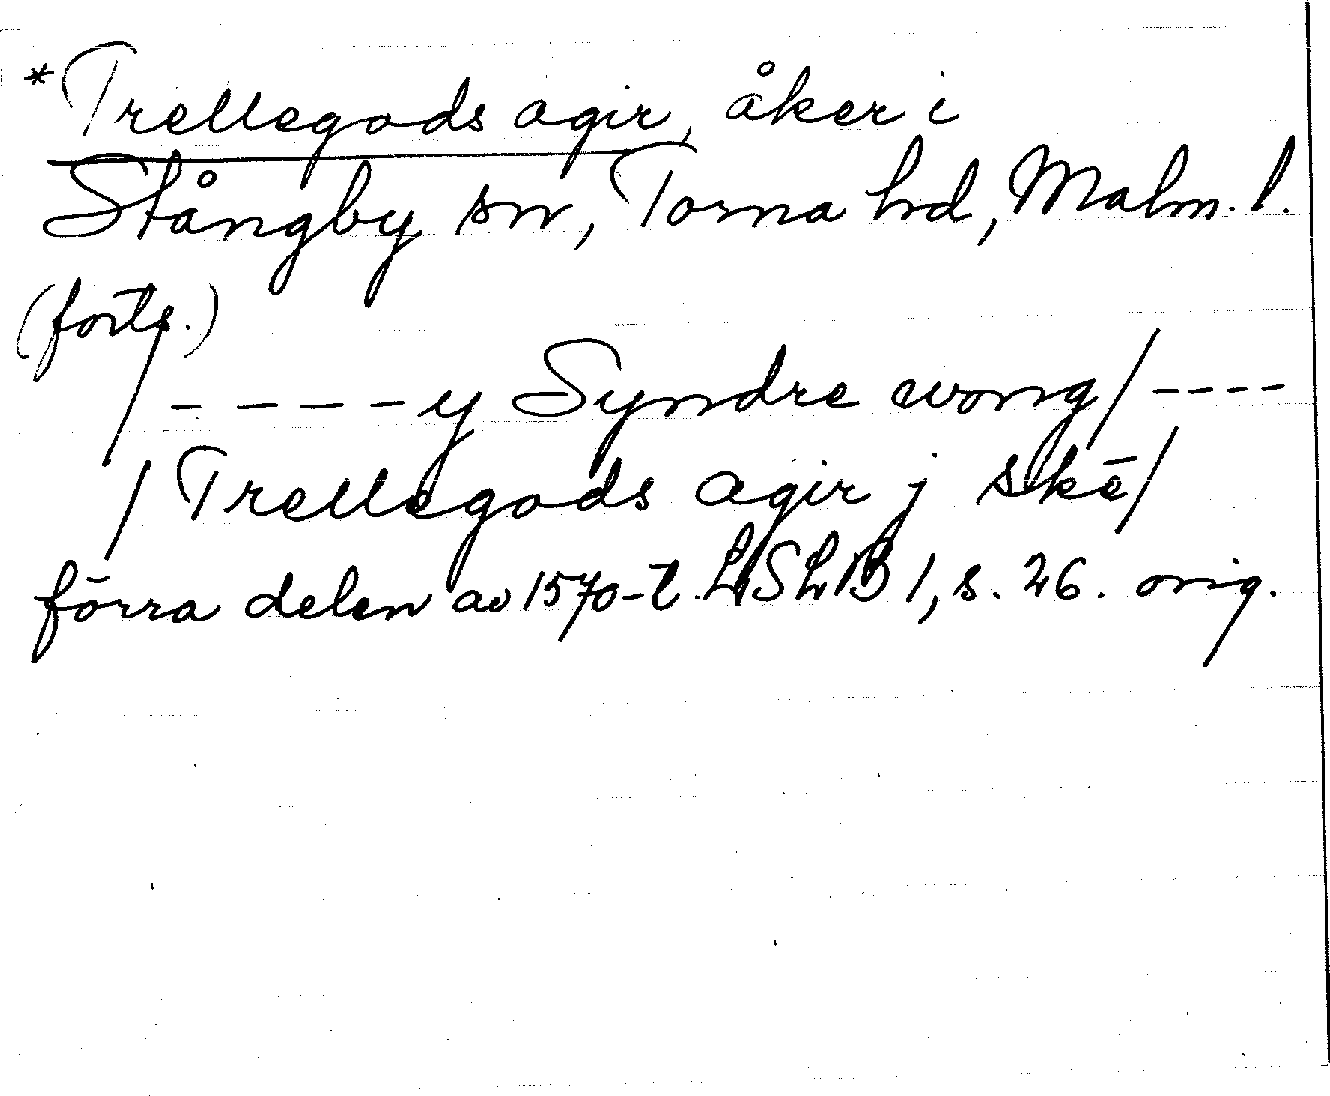 *Trellegods agir, åker i
Stångby sn, Torna hd, Malm. l.
(forts.)
/ - - - - y Syndre wong / - - - -
/ Trellegods agir j skē /
förra delen av 1570-t. LSLB 1, s. 26. orig.